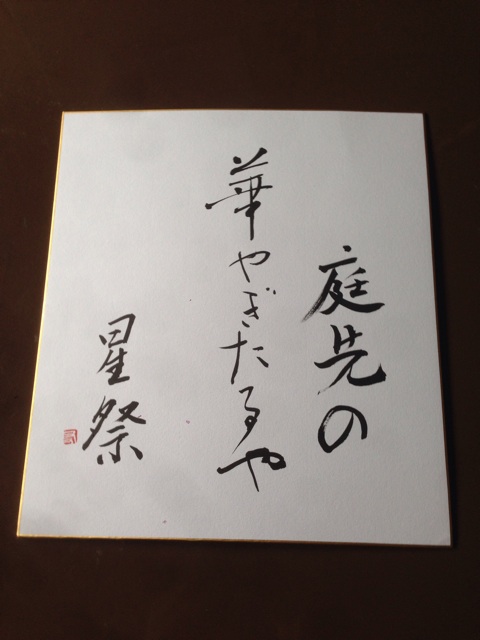 庭先の
華やぎたるや
星祭